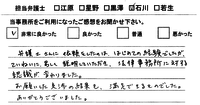 担当弁護士 □江原 □里野 □黒澤 ☑石川 □若生
当事務所をご利用になったご感想をお聞かせ下さい。
☑ 非常に良かった □ 良かった □ 普通 □ 悪かった
弁護士さんに依頼をしたのは、はじめての経験でしたが、
ていねいに、親しく説明いただき、法律事務所に対する
認識が変わりました。
お願いした案件の結果も、満足できるものでした。
ありがとうございました。